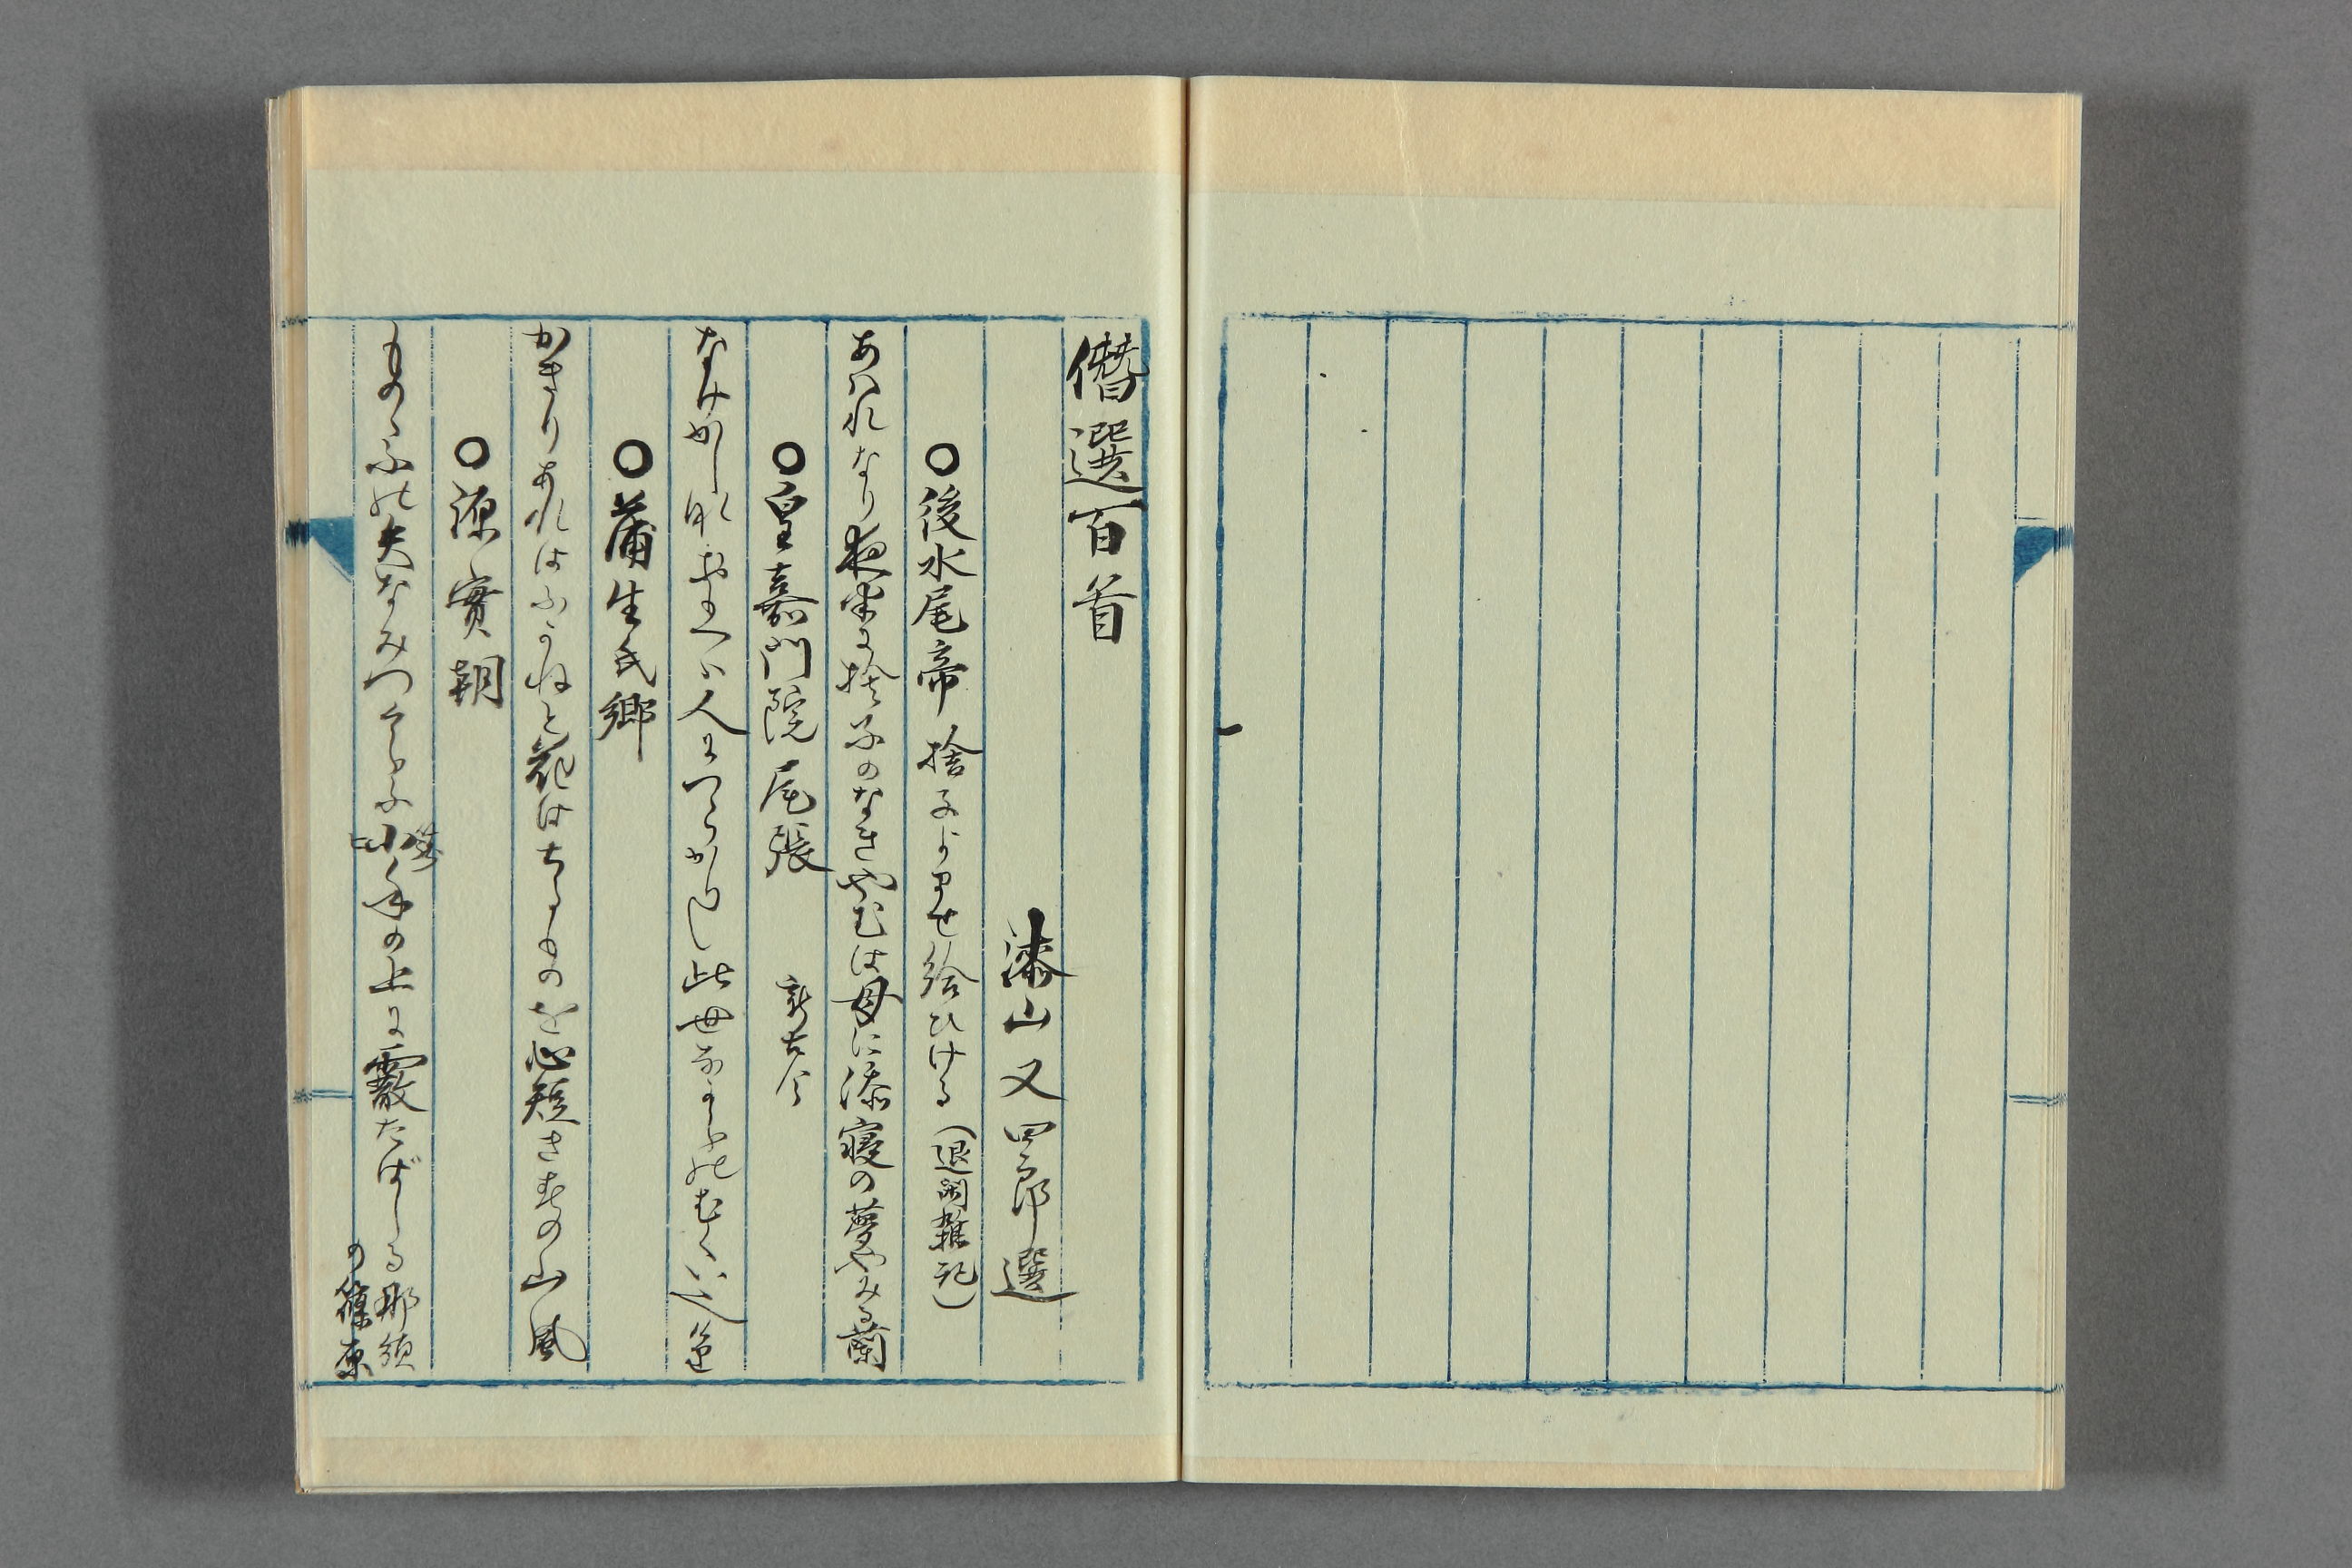 僭選百首
漆山又四郎選
○後水尾帝 捨子よませ給ひける(退閑雑記)
あハれなり夜半に捨子のなきやむは母に添寝の夢やみる蘭
○皇嘉門院尾張 新古今
なけかしな思へハ人につらかりし此世なからのむくいなり
○蒲生氏郷
かきりあれはふかねと花はちるものを心短き春の山風
○源實朝
ものゝふの矢なみつくらふ小手の上に霰たばしる那須
の篠原